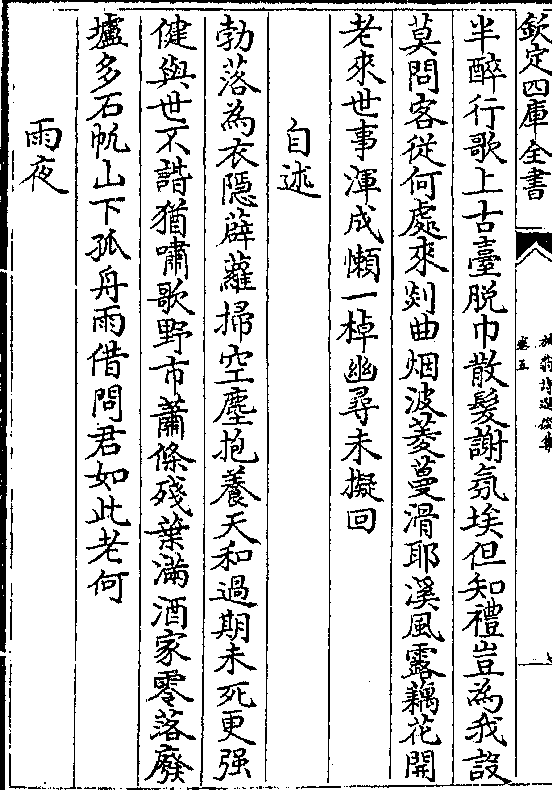 欽定四庫全書
卷五
半醉行歌上古臺脱巾散髮謝氛埃但知禮豈為我設
莫問客從何處來剡曲烟波菱蔓滑耶溪風露藕花開
老來世事渾成懶一棹幽尋未擬回
自述
勃落為衣隱薜蘿掃空塵抱養天和過期未死更强
健與世不諧猶嘯歌野市蕭條殘葉滿酒家零落廢
壚多石帆山下孤舟雨借問君如此老何
雨夜